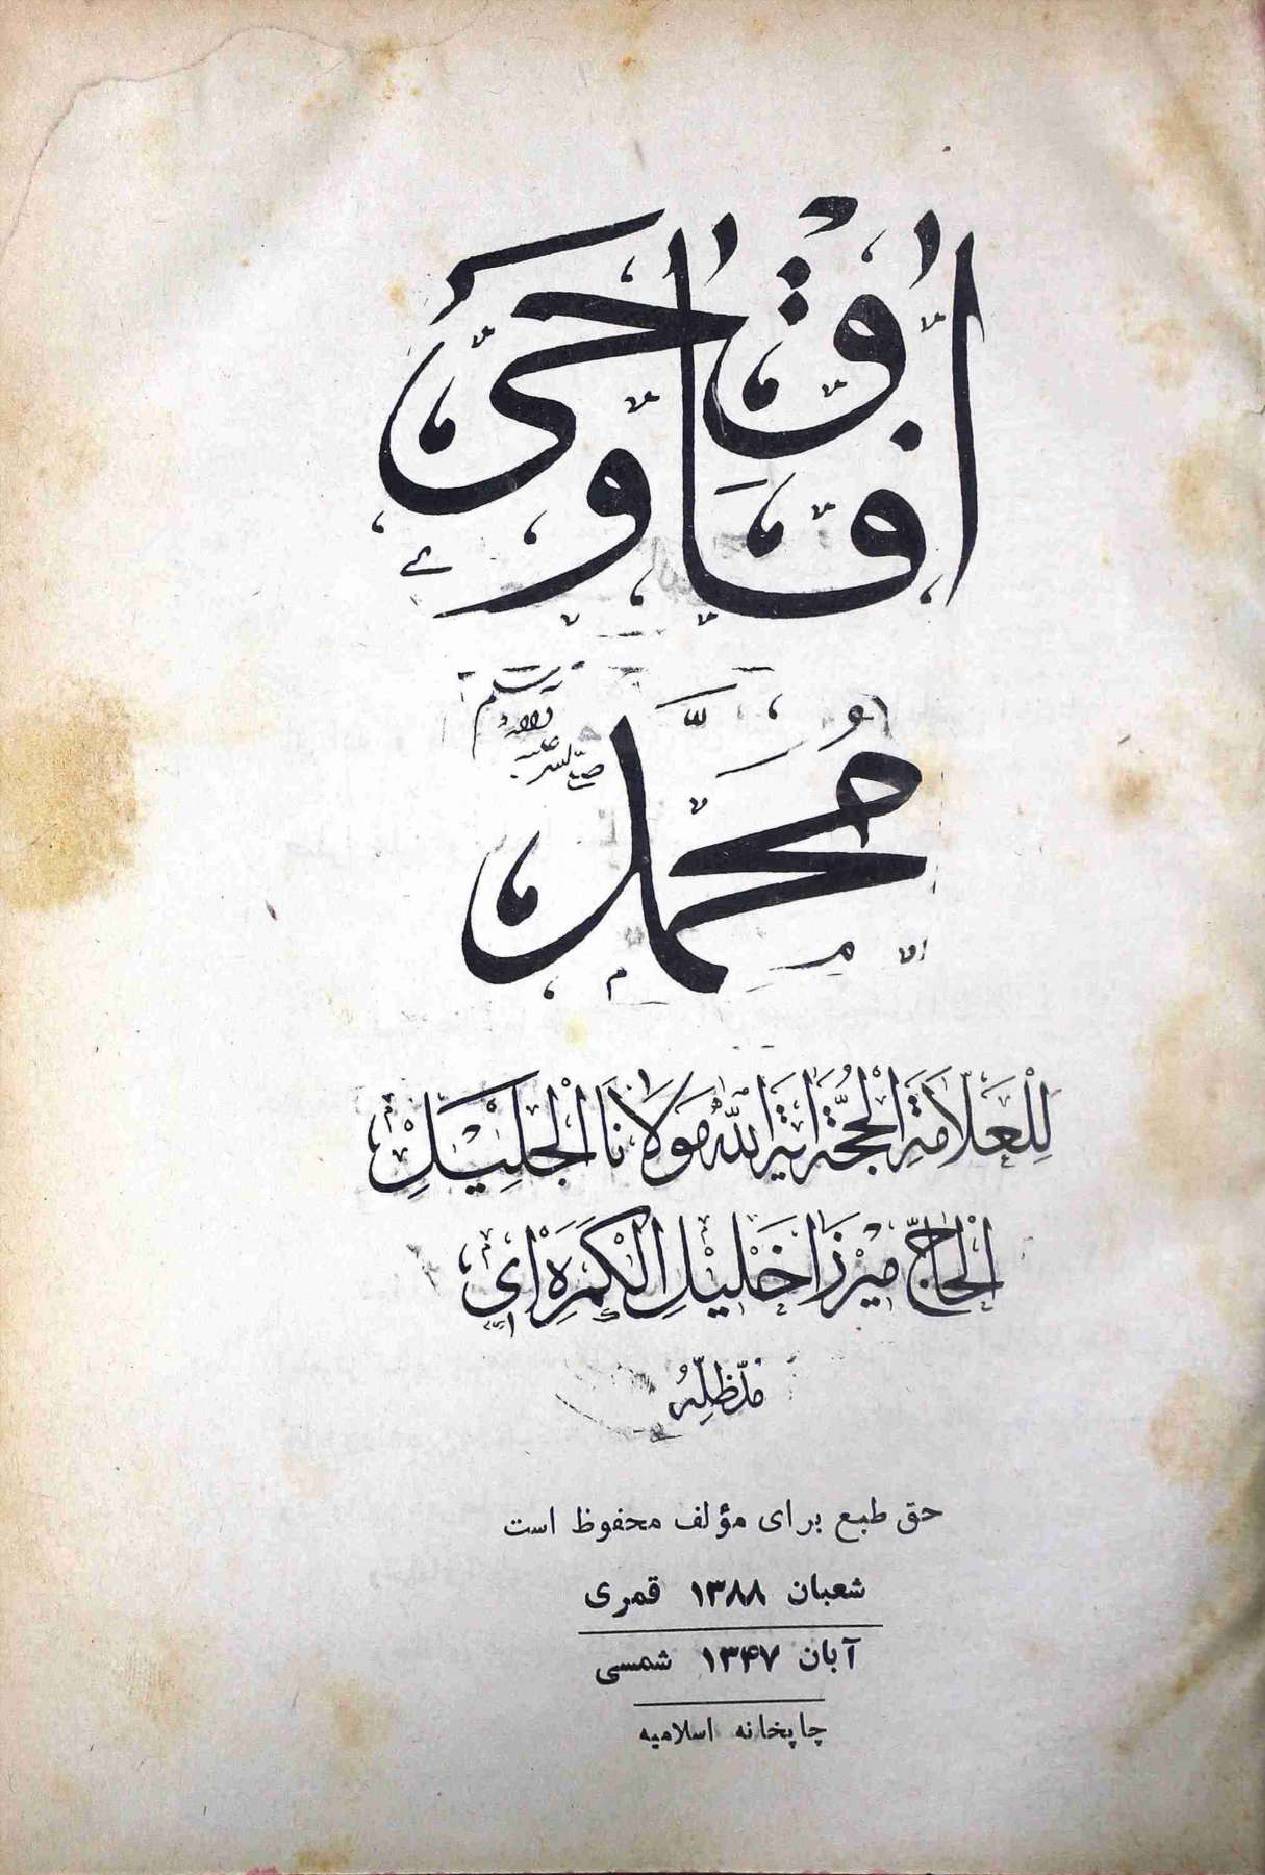 افاق وحی
مُحَمَّد صلی الله علیه و آله و سلم
لِلْعَلّامَةِ الْحُجَّةِ ایَةِ اللّٰه مَوْلانَا الْجَلِیْلِ
الْحاجّ مِیْرْزا خَلِیْلِ الْکَمَرِهْ اي
مُدَّ ظِلُّهُ
حق طبع برای مؤلف محفوظ است
شعبان ۱۳۸۸ قمری
آبان ۱۳۴۷ شمسی
چاپخانه اسلامیه